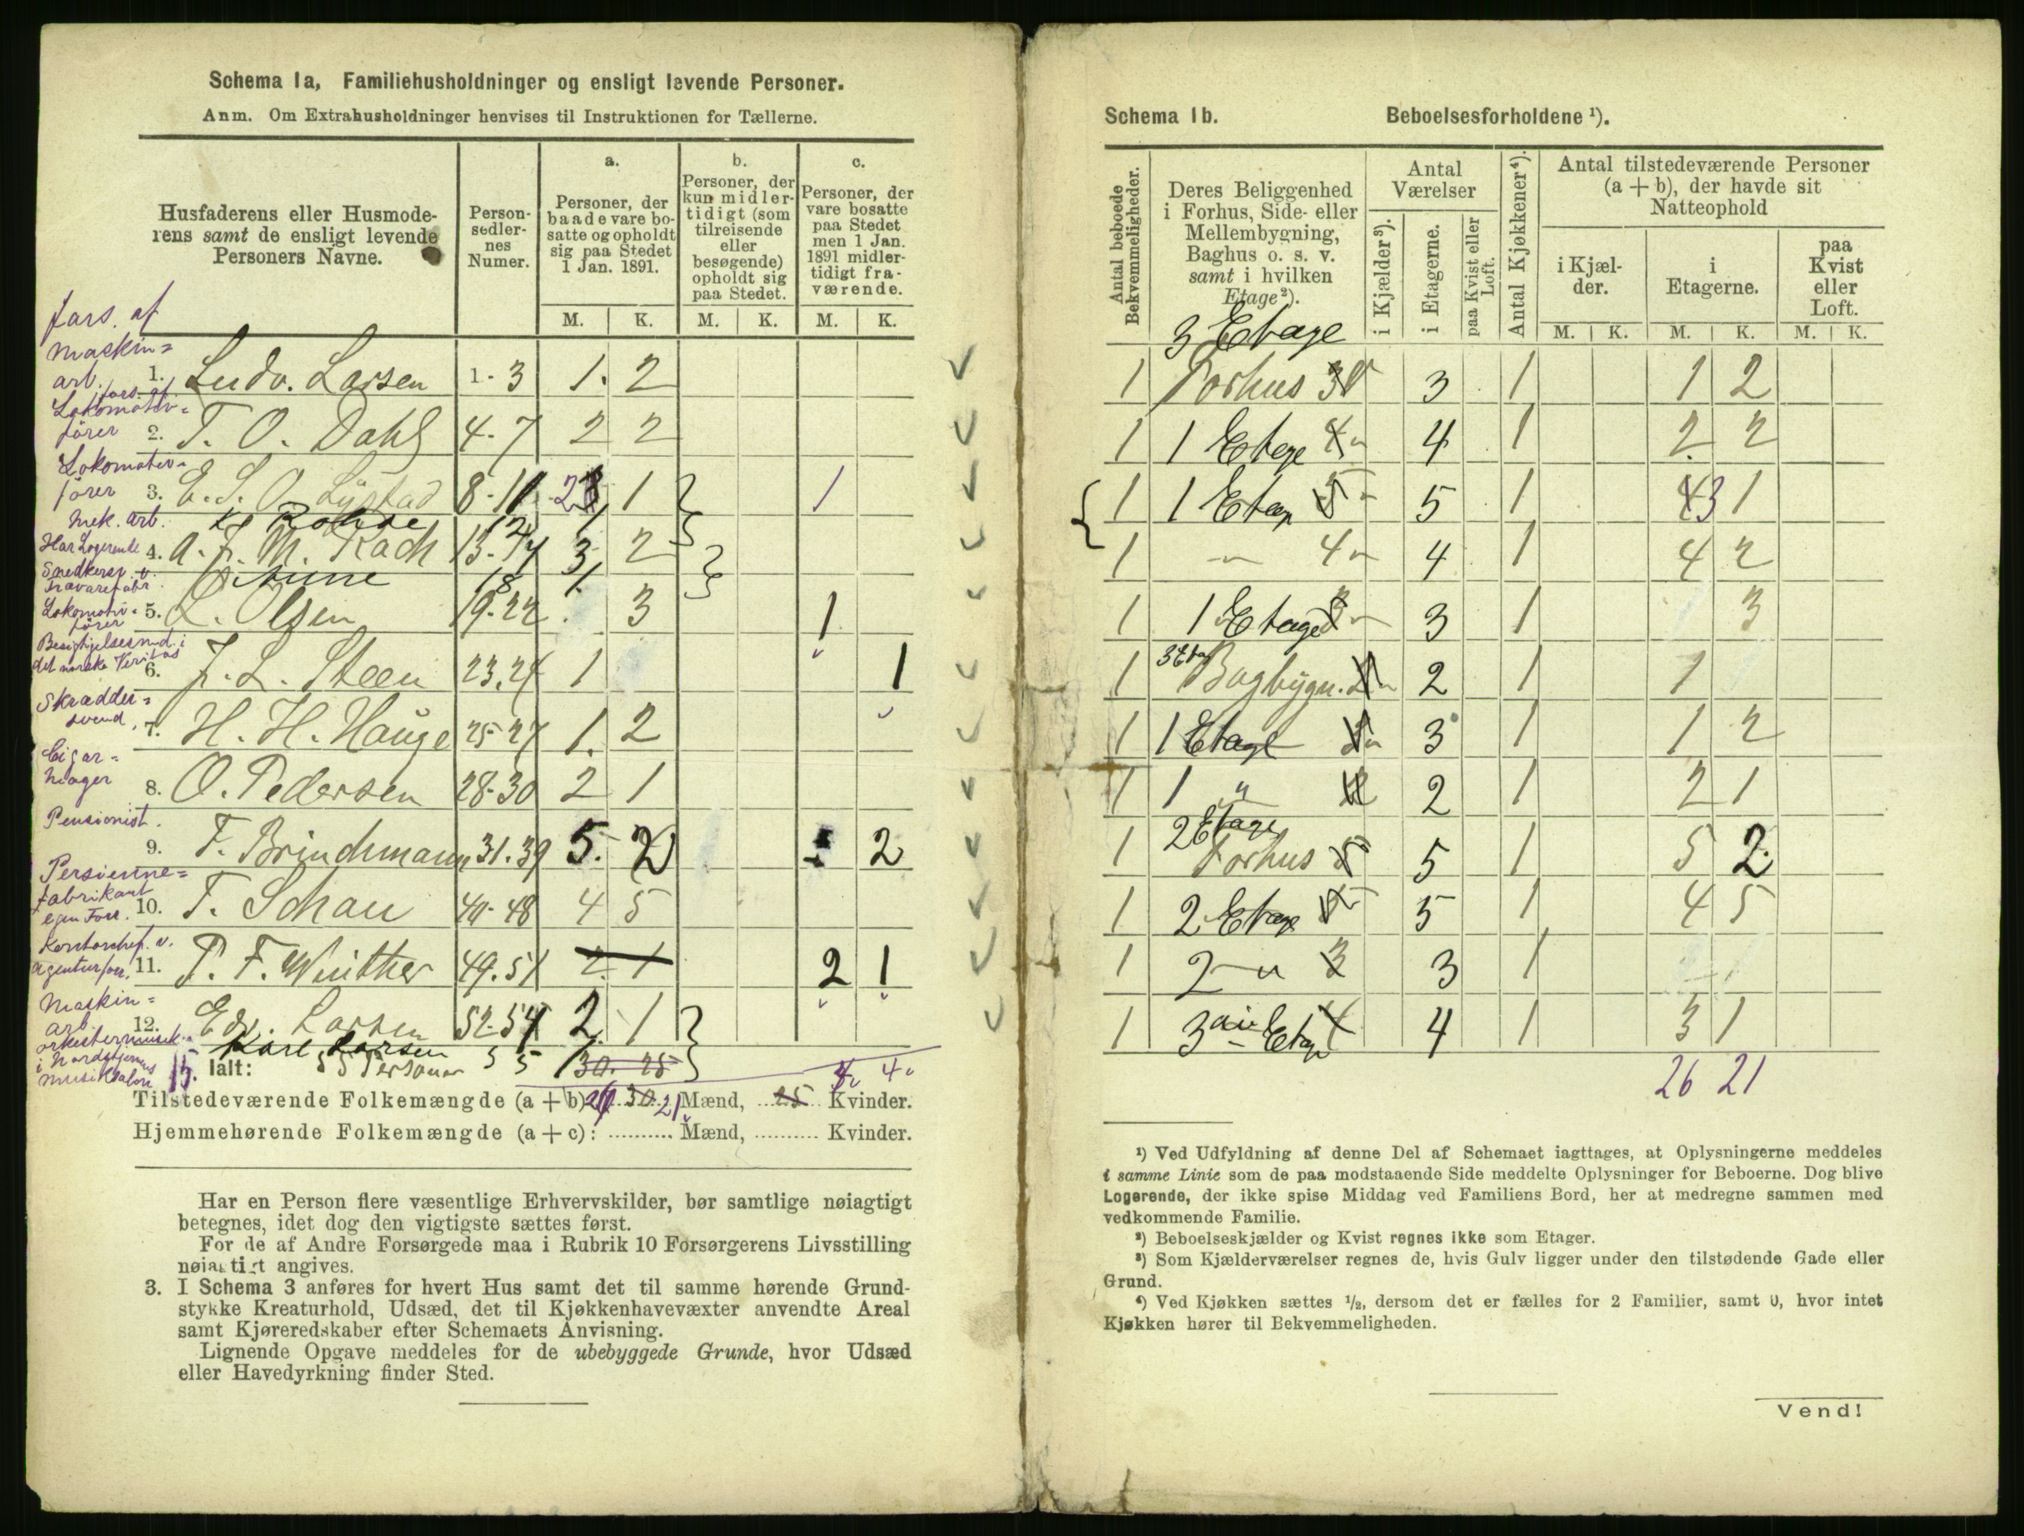 Schema 1a, Familiehusholdninger og ensligt levende Personer.
Anm. Om Extrahusholdninger henvises til Instruktionen for Tællerne.
Husfaderens eller Husmode-
rens samt de ensligt levende
Personers Navne.
Person-
sedler-
nes
Numer.
a.
Personer, der
baade vare bo-
satte og opholdt
sig paa Stedet
1 Jan. 1891.
b.
Personer, der
kun midler-
tidigt (som
tilreisende
eller
besøgende)
opholdt sig
paa Stedet.
c.
Personer, der
vare bosatte
paa Stedet
men 1 Jan.
1891 midler-
tidigt fra-
værende.
M. K. M. K. M. K.
fors. af
Maskin=
arb. 1. Ludv. Larsen 1-3 1. 2
fors. af
Lokomotiv=
fører 2. T. O. Dahl 4-7 2 2
Lokomotiv=
fører 3. E. S. O. Lystad 8-11 2 1 1
Mek. arb. Rohde 12 1
Har Logerende 4. A. J. M. Koch 13-17 3 2
Snedkersv. v.
Trævarefabr. 18 1.
Lokomotiv=
fører 5. L. Olsen 19-22 3 1
Besigtjelsesmd. i
det norske Veritas 6. J. L. Steen 23.24 1 1
Skrædder=
svend 7. H. H. Hauge 25-27 1. 2
Cigar=
mager 8. O. Pedersen 28-30 2 1
Pensionist. 9. F. Brinchmann 31.39 5. 2 2
Persienne=
fabrikant
egen Forr. 10. T. Schau 40-48 4 5
Kontorchef. v.
Agenturforr. 11. P. F. Winther 49.51 2. 1 2 1
Maskin=
arb. 12. Edv. Larsen 52-54 2. 1
orkestermusik.
i Nordstjernens
Musiksalon Karl Larsen 55 1
15. Ialt: 55 Personer 30. 25 4 4
Tilstedeværende Folkemængde (a + b) 26 30 21 Mænd, 25 Kvinder.
Hjemmehørende Folkemængde (a + c): .......... Mænd, .......... Kvinder.
Har en Person flere væsentlige Erhvervskilder, bør samtlige nøiagtigt
betegnes, idet dog den vigtigste sættes først.
For de af Andre Forsørgede maa i Rubrik 10 Forsørgerens Livsstilling
nøiagtigt angives.
3. I Schema 3 anføres for hvert Hus samt det til samme hørende Grund-
stykke Kreaturhold, Udsæd, det til Kjøkkenhavevæxter anvendte Areal
samt Kjøreredskaber efter Schemaets Anvisning.
Lignende Opgave meddeles for de ubebyggede Grunde, hvor Udsæd
eller Havedyrkning finder Sted.
Schema 1b. Beboelsesforholdene ¹).
Antal beboede
Bekvemmeligheder.
Deres Beliggenhed
i Forhus, Side- eller
Mellembygning,
Baghus o. s. v.
samt i hvilken
Etage²).
Antal
Værelser
i Kjælder³).
i Etagerne.
paa Kvist eller
Loft.
Antal Kjøkkener⁴).
Antal tilstedeværende Personer
(a + b), der havde sit
Natteophold
i Kjæl-
der.
i
Etagerne.
paa
Kvist
eller
Loft.
M. K. M. K. M. K.
3 Etage
1 Forhus 3 3 1 1 2
1 1 Etage 4 4 1 2 2
1 1 Etage 5 5 1 3 1
1 " 4 4 1 4 2
1 1 Etage 3 3 1 3
3 Etag
1 Bagbygn. 2 2 1 1
1 1 Etage 3 1 1 2
1 1 " 2 2 1 2 1
2 Etage
1 Forhus 5 5 1 5 2
1 2 Etage 5 5 1 4 5
1 2 " 3 3 1
1 3die Etage 4 4 1 3 1
26 21
¹) Ved Udfyldning af denne Del af Schemaet iagttages, at Oplysningerne meddeles
i samme Linie som de paa modstaaende Side meddelte Oplysninger for Beboerne. Dog blive
Logerende, der ikke spise Middag ved Familiens Bord, her at medregne sammen med
vedkommende Familie.
²) Beboelseskjælder og Kvist regnes ikke som Etager.
³) Som Kjælderværelser regnes de, hvis Gulv ligger under den tilstødende Gade eller
Grund.
⁴) Ved Kjøkken sættes ½, dersom det er fælles for 2 Familier, samt 0, hvor intet
Kjøkken hører til Bekvemmeligheden.
Vend!